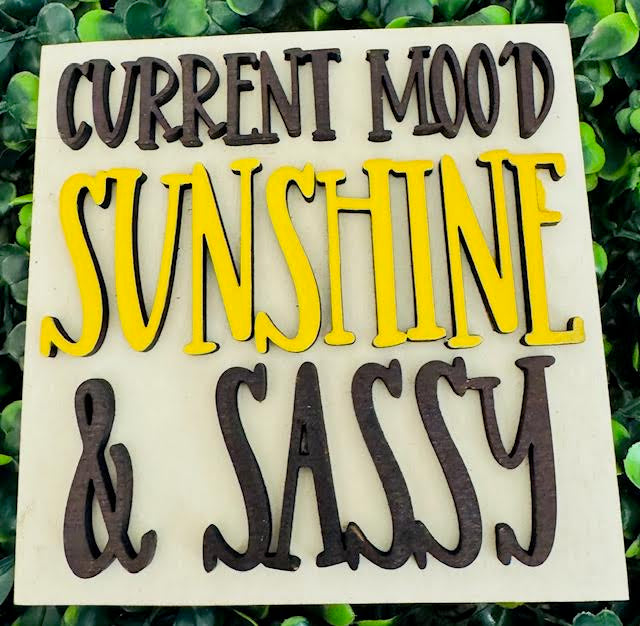 CURRENT MOOD
SUNSHINE
& SASSY